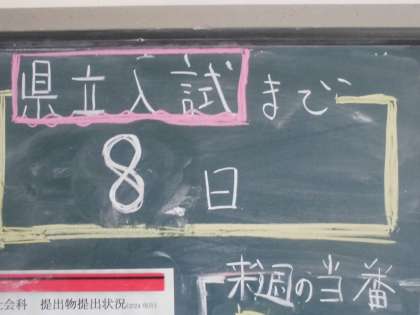 県立入試まで
8日
来週の当番
社会科 提出物提出状況